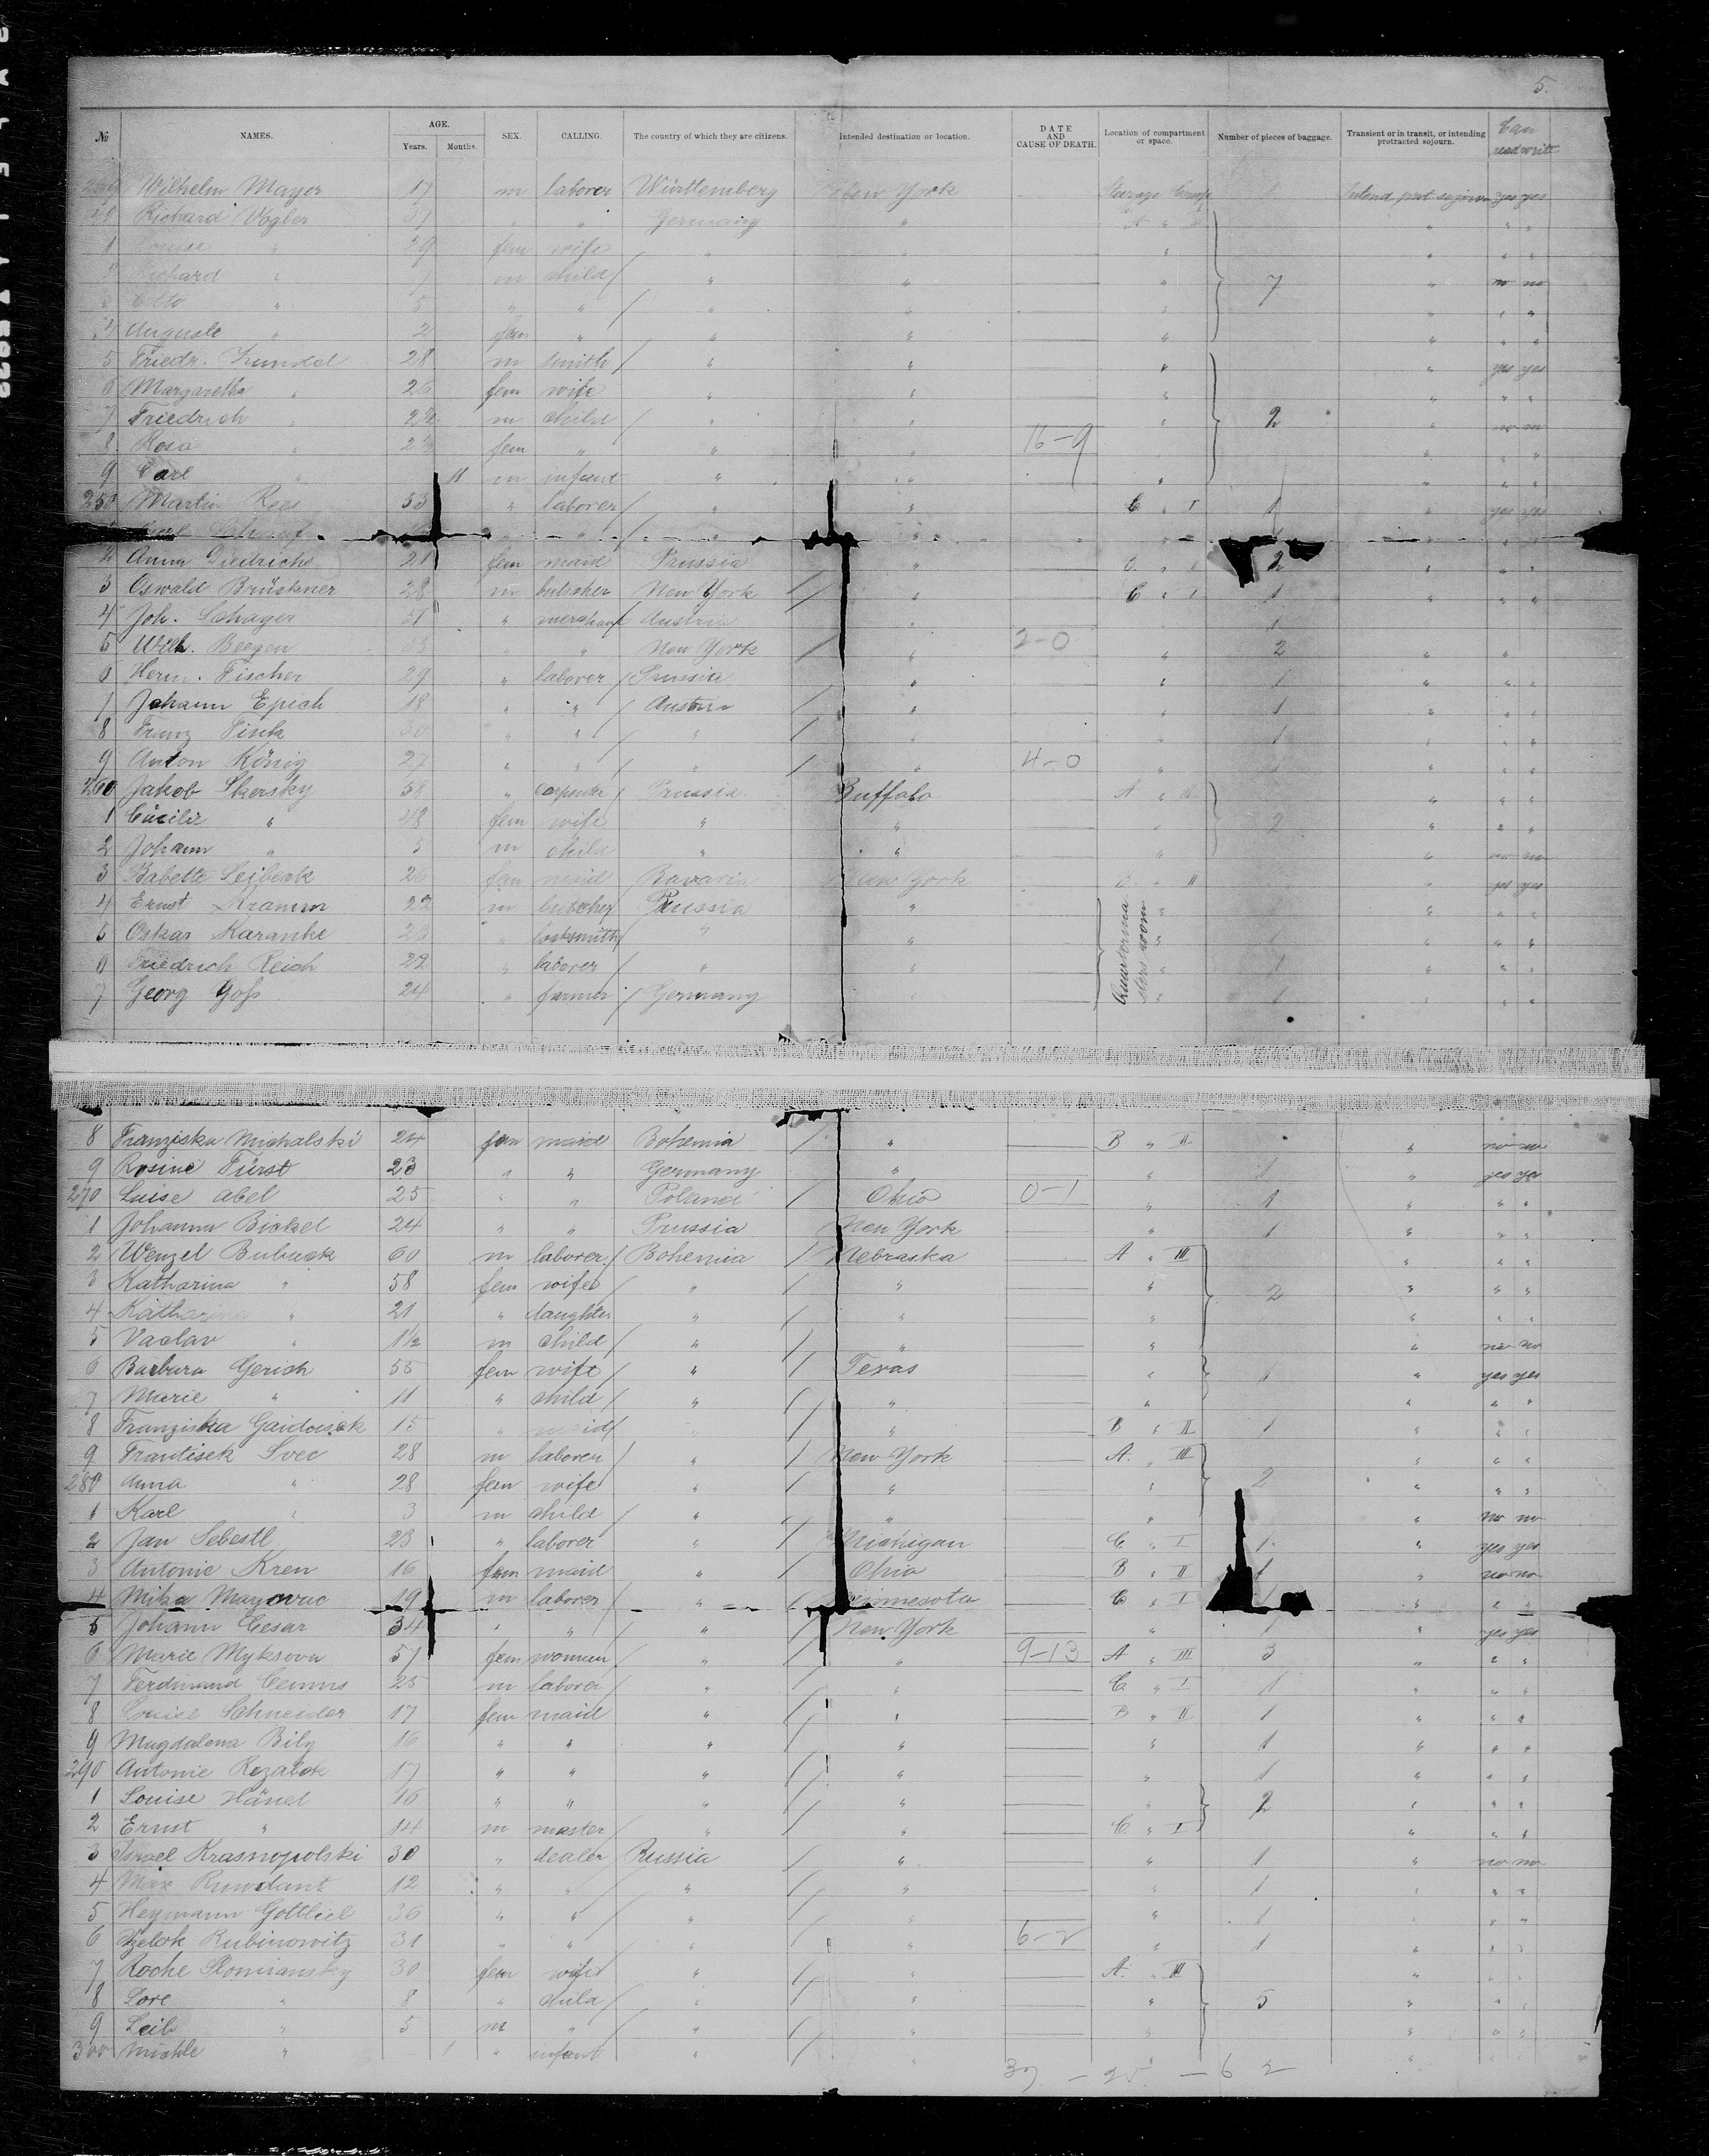 5.
№ NAMES. AGE. Years. Months. SEX. CALLING. The country of which they are citizens. Intended destination or location. DATE AND CAUSE OF DEATH. Location of compartment or space. Number of pieces of baggage. Transient or in transit, or intending protracted sojourn. Can read write
Wilhelm Mayer 17 m laborer Württemberg New York 1 yes yes
Richard Vogler 37 " " Germany "
1 Louise " 29 fem wife " " " " " "
2 Richard " 7 m child " " " 7 " no no
3 Otto " 5 " " " " " " " "
4 Auguste " 2 fem " " " " " " "
5 Friedr. Kunkel 28 m smith " " " " yes yes
6 Margaretha " 26 fem wife " " " " " "
7 Friedrich " m child " " " 2 " no no
8 Rosa " fem " " " 16-9 " " " "
9 Carl " 11 m infant " " " " " "
250 Martin 53 " laborer " " C " I 1 " yes yes
2 Anna Diedrichs 21 fem maid Prussia " 2 " " "
3 Oswald Brückner 28 m butcher New York " C " I 1 " " "
4 Joh. Schager 51 " merchant Austria " 1
5 Wilh. Beegen " " New York " 2-0 " 2 " "
6 Herm. Fischer 29 " laborer Prussia " " 1 " " "
7 Johann Epich 18 " " Austria " " 1 " " "
8 Franz Fink 30 " " " " " 1 " " "
9 Anton König 27 " " " " 4-0 " 1 " " "
260 Jakob Skersky 38 " carpenter Prussia Buffalo A " III " " "
1 " 48 fem wife " " " 2 " " "
2 Johann " 3 m child " " " " no no
3 Babette Leibeck 26 fem maid Bavaria New York B " II " yes yes
4 Ernst Kramm 22 m butcher Prussia " Quartermasters room " " " "
5 Oskar Karanke " locksmith " " " 1 " " "
6 Friedrich Reich 22 " laborer " " " 1 " " "
7 Georg Goß 24 " farmer Germany " " 1 " " "
8 Franziska Michalski 24 fem maid Bohemia " B " II " no no
9 Rosine Fürst 23 " " Germany " " 1 " yes yes
270 Luise Abel 25 " " Poland Ohio 0-1 " 1 " " "
1 Johanna Bickel 24 " " Prussia New York " 1 " " "
2 Wenzel Bubucek 60 m laborer Bohemia Nebraska A " III " " "
3 Katharina " 58 fem wife " " " 2 " " "
4 Katharina " 21 " daughter " " " " " "
5 Vaclav " 1½ m child " " " " no no
6 Barbara Gerich 55 fem wife " Texas " 1 " yes yes
7 Marie " 11 " child " " " " " "
8 Franziska 15 " maid " " B " II 1 " " "
9 Frantisek Svec 28 m laborer " New York A. " III " " "
280 Anna " 28 fem wife " " " 2 " " "
1 Karl " 3 m child " " " " no no
2 Jan Sebestl 23 " laborer " Michigan C " I 1 " yes yes
3 Antonie Kren 16 fem maid " Ohio B " II 1 " no no
4 Mika 19 m laborer " Minnesota C " I 1 " " "
5 Johann Cesar 34 " " " New York " 1 " yes yes
6 Marie Myksova 57 fem woman " " 9-13 A " III 3 " " "
7 Ferdinand 25 m laborer " " C " I 1 " " "
8 Louise Schneider 17 fem maid " " B " II 1 " " "
9 Magdalena Bily 16 " " " " " 1 " " "
290 Antonie Rezabek 17 " " " " " 1 " " "
1 Louise Hänel 16 " " " " " 2 " " "
2 Ernst " 14 m master " " C. " I " " "
3 Israel Krasnopolski 30 " dealer Russia " " 1 " no no
4 Max 12 " " " " " 1 " " "
5 Heymann Gottlieb 36 " " " " " 1 " "
6 Rubinowitz 31 " " " " 6-2 " 1 " " "
7 Roche Slomiansky 30 fem wife " " A. " III " " "
8 Lore " 8 " child " " " 5 " " "
9 Leib " 5 m " " " " " " "
300 Michle " 1 " infant " " " " " "